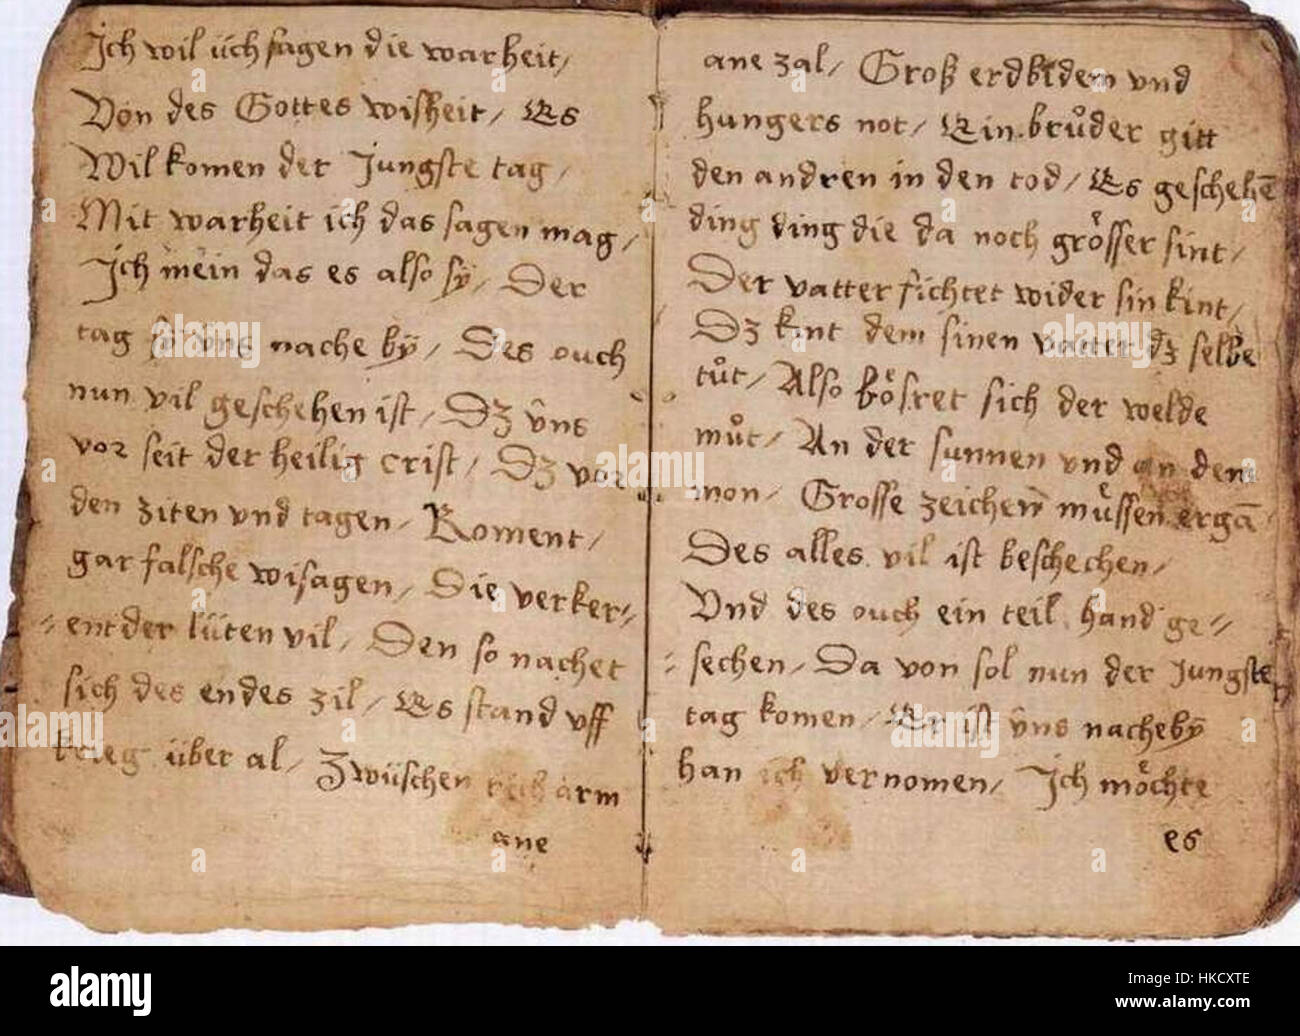 Ich wil üch sagen die warheit/
Von des Gottes wisheit/ Es
Wil komen der Jungste tag/
Mit warheit ich das sagen mag/
Ich mein das es also sÿ/ Der
tag sÿ vns nache bÿ/ Des ouch
nun vil geschehen ist/ Dz vns
vor seit der heilig crist/ Dz vor
den ziten vnd tagen/ Koment/
gar falsche wisagen/ Die verker⸗
⸗ent der lüten vil/ Den so nachet
sich des endes zil/ Es stand vff
krieg über al/ Zwüschen rich arm
ane
ane zal/ Groß erdbidem vnd
hungers not/ Ein bruͦder gitt
den andren in den tod/ Es geschehē
ding ding die da noch groͤsser sint/
Der vatter fichtet wider sin kint/
Dz kint dem sinen vatter dz selbe
tuͦt/ Also boͤsret sich der welde
muͦt/ An der sunnen vnd an dem
mon/ Grosse zeichen muͤssen ergā
Des alles vil ist beschechen/
Vnd des ouch ein teil hand ge⸗
⸗sechen/ Da von sol nun der Jungste
tag komen/ Er ist vns nachebÿ
han ich vernomen/ Ich moͤchte
es
alamy
Image ID: HKCXTE
www.alamy.com